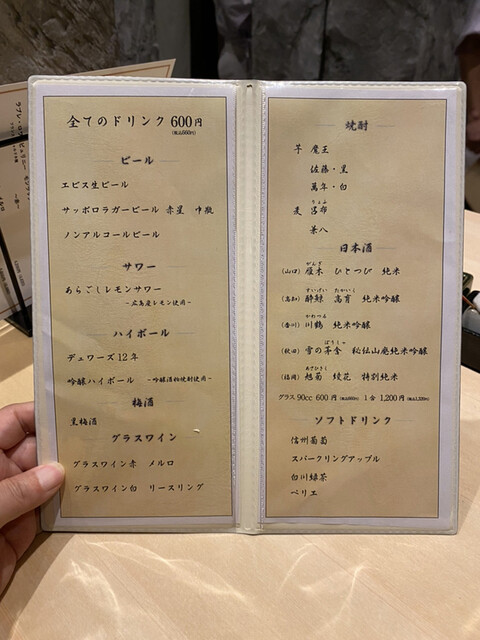 全てのドリンク 600円
(税込660円)
ビール
エビス生ビール
サッポロラガービール 赤星 中瓶
ノンアルコールビール
サワー
あらごしレモンサワー
-広島産レモン使用-
ハイボール
デュワーズ12年
吟醸ハイボール -吟醸酒粕焼酎使用-
梅酒
黒梅酒
グラスワイン
グラスワイン赤 メルロ
グラスワイン白 リースリング
焼酎
芋 魔王
佐藤・黒
萬年・白
りょふ
麦 呂布
兼八
日本酒
がんぎ
(山口) 雁木 ひとつび 純米
すいげい たかいく
(高知) 酔鯨 高育 純米吟醸
かわつる
(香川) 川鶴 純米吟醸
ぼうしゃ
(秋田) 雪の茅舎 秘伝山廃純米吟醸
あさひきく
(福岡) 旭菊 綾花 特別純米
グラス 90cc 600円(税込660円) 1合 1,200円(税込1,320円)
ソフトドリンク
信州葡萄
スパークリングアップル
白川緑茶
ペリエ